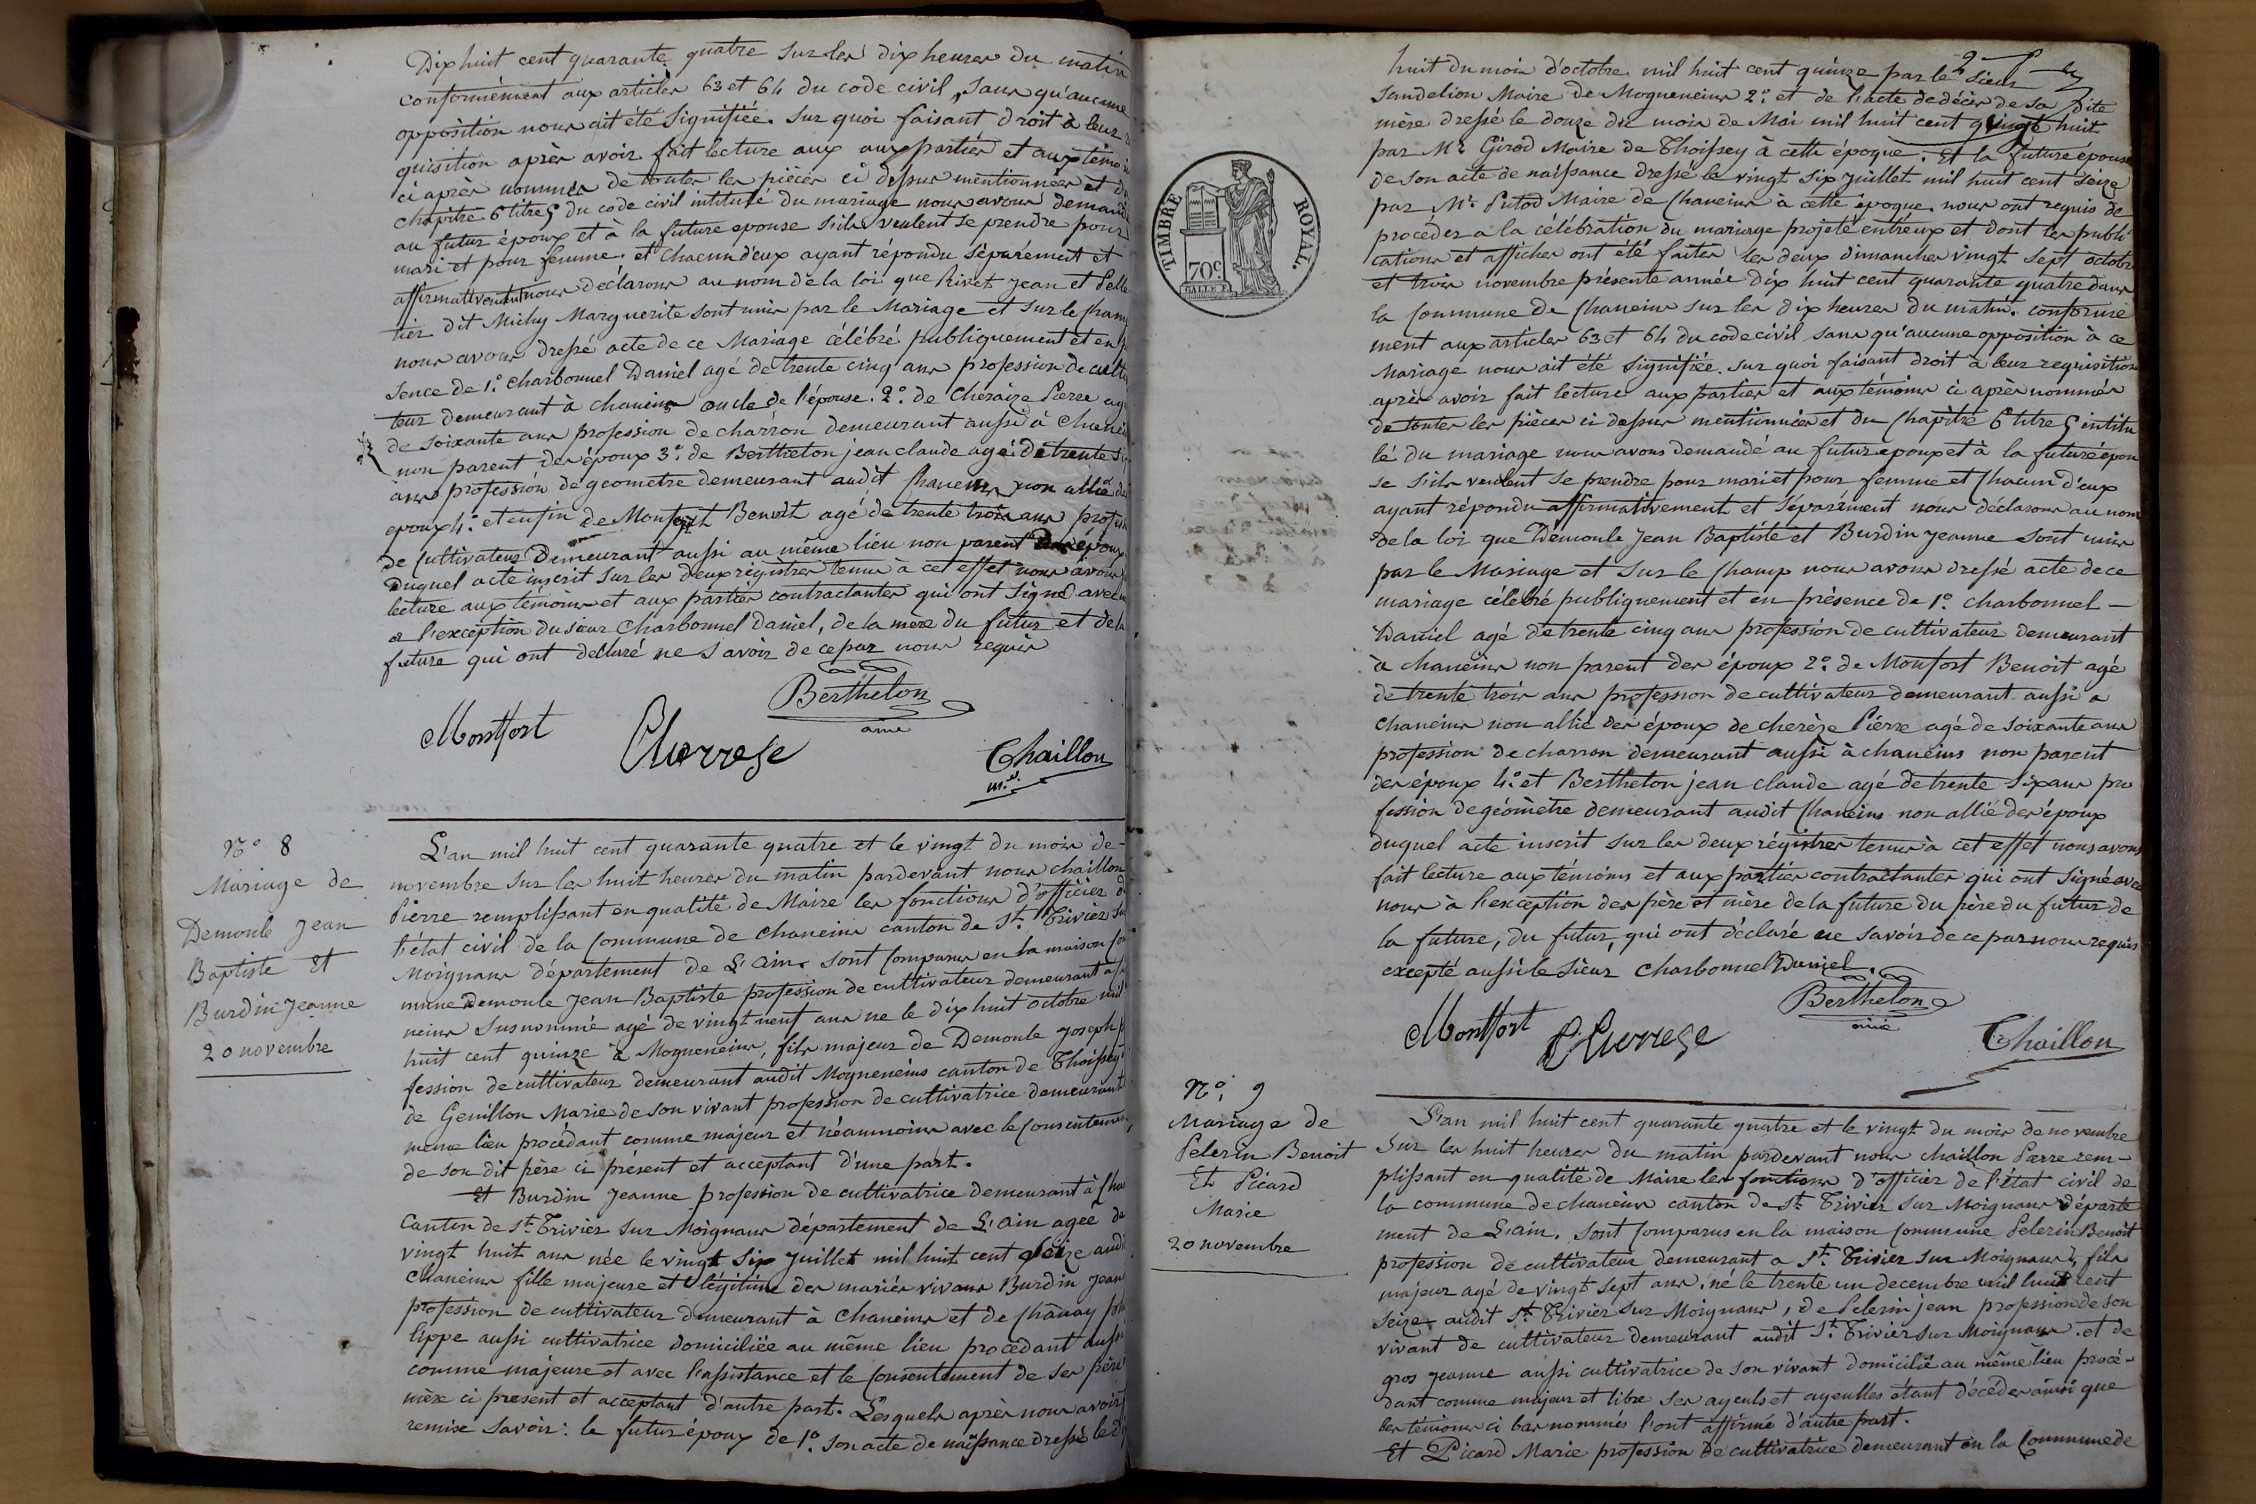 Dix huit cent quarante quatre sur les dix heures du matin
conformément aux articles 63 et 64 du code civil, sans qu'aucune
opposition nous ait été signifiée. sur quoi faisant droit à leur ré
quisition après avoir fait lecture aux aux parties et aux témoi
ci après nommés de toutes les pièces ci dessus mentionnées et du
chapitre 6 titre 5 du code civil intitulé du mariage nous avons demandé
au futur époux et à la future epouse s'ils veulent se prendre pour
mari et pour femme. et chacun d'eux ayant répondu séparément et
affirmativement nous déclarons au nom de la loi que Rivet Jean et Pelle
tier dit Michy Marguerite sont unis par le Mariage et sur le champ
nous avons dressé acte de ce Mariage célébré publiquement et en p
sence de 1.° charbonnel Daniel agé de trente cinq ans profession de culti
teur demeurant à chaneins oncle de l'épouse. 2.° de Cheraize Pierre agé
de soixante ans profession de charron demeurant aussi à Chanei
non parent des époux 3.° de Berthelon jean claude agé de trente six
ans profession de géometre demeurant audit Chaneins non allié des
epoux 4.° et enfin de Monfort Benoit agé de trente trois ans profess
de Cultivateur Demeurant aussi au même lieu non parent des époux
Duquel acte inscrit sur les deux régistres tenus à cet effet nous avons
lecture aux témoins et aux parties contractantes qui ont signé avec
à l'exception du sieur Charbonnel Daniel, de la mère du futur et de la
future qui ont déclaré ne savoir de ce par nous requis
Berthelon
ainé
Montfort
Cherrese
Chaillon
m.re
N.° 8
Mariage de
Demoule Jean
Baptiste Et
Burdin Jeanne
20 novembre
L'an mil huit cent quarante quatre et le vingt du mois de
novembre sur les huit heures du matin pardevant nous chaillon
Pierre remplissant en qualité de Maire les fonctions d'officier de
l'état civil de la Commune de chaneins canton de S.t Trivier sur
Moignans département de L'Ain. sont Comparus en la maison Com
mune Demoule Jean Baptiste profession de cultivateur demeurant à cha
neins susnommé agé de vingt neuf ans ne le dix huit octobre mil
huit cent quinze à Mogneneins, fils majeur de Demoule Joseph p
fession de cultivateur demeurant audit Mogneneins canton de Thoissey
de Genillon Marie de son vivant profession de cultivatrice demeurant
meme lieu procédant comme majeur et néanmoins avec le Consentemen
de son dit père ci présent et acceptant d'une part.
Et Burdin Jeanne profession de cultivatrice demeurant à Cha
Canton de S.t Trivier sur Moignans département de L'Ain agée de
vingt huit ans née le vingt six Juillet mil huit cent seize audi
Chaneins fille majeure et légitime des mariés vivans Burdin Jean
profession de cultivateur demeurant à Chaneins et de Chanay phi
lippe aussi cultivatrice domiciliée au même lieu procédant aussi
comme majeure et avec l'assistance et le Consentement de ses père
mère ci present et acceptant d'autre part. Lesquels après nous avoir
remise savoir: le futur époux de 1.° son acte de naissance dressé le di
9
huit du mois d'octobre mil huit cent quinze par le Sieur
Sandelion Maire de Mogneneins 2.° et de l'acte de décès de sa dite
mère dressé le douze du mois de Mai mil huit cent vingt huit
par M.r Girod Maire de Thoissey à cette époque. Et la future épouse
de son acte de naissance dressé le vingt six Juillet mil huit cent seize
par M.r Putod Maire de Chaneins à cette époque, nous ont requis de
procéder à la célébration du mariage projeté entr'eux et dont les publi
cations et affiches ont été faites les deux dimanches vingt sept octobre
et trois novembre présente année dix huit cent quarante quatre dans
la Commune de Chaneins sur les dix heures du matin. conformé
ment aux articles 63 et 64 du code civil sans qu'aucune opposition à ce
Mariage nous ait été signifiée. sur quoi faisant droit à leur requisition
après avoir fait lecture aux parties et aux témoins ci après nommés
de toutes les pièces ci dessus mentionnées et du Chapitre 6 titre 5 intitu
lé du mariage nous avons demandé au futur epoux et à la future épou
se s'ils veulent se prendre pour mari et pour femme et Chacun d'eux
ayant répondu affirmativement et séparément nous déclarons au nom
de la loi que Demoule Jean Baptiste et Burdin Jeanne sont unis
par le Mariage et sur le Champ nous avons dressé acte de ce
mariage célébré publiquement et en présence de 1.° charbonnel —
Daniel agé de trente cinq ans profession de cultivateur demeurant
à chaneins non parent des époux 2.° de Monfort Benoit agé
de trente trois ans profession de cultivateur demeurant aussi a
Chaneins non allié des époux de cherèze Pierre agé de soixante ans
profession de charron demeurant aussi à chaneins non parent
des époux 4.° et Berthelon jean claude agé de trente six ans pro
fession de géomètre demeurant audit Chaneins non allié des époux
duquel acte inscrit sur les deux régistres tenus à cet effet nous avons
fait lecture aux témoins et aux parties contractantes qui ont signé avec
nous à l'exception des père et mère de la future du père du futur de
la future, du futur, qui ont déclaré ne savoir de ce par nous requis
excepté aussi le Sieur Charbonnel Daniel.
Berthelon
ainé
Montfort
Cherrese
Chaillon
TIMBRE ROYAL.
70c
N.° 9
Mariage de
Pelerin Benoit
Et Picard
Marie
20 novembre
L'an mil huit cent quarante quatre et le vingt du mois de novembre
sur les huit heures du matin pardevant nous chaillon Pierre rem-
plissant en qualité de Maire les fonctions d'officier de l'état civil de
la commune de chaneins canton de S.t Trivier sur Moignans départe
ment de L'ain. sont Comparus en la maison Commune Pelerin Benoit
profession de cultivateur demeurant a S.t Trivier sur Moignans, fils
majeur agé de vingt sept ans. né le trente un decembre mil huit cent
seize audit S.t Trivier sur Moignans, de Pelerin jean profession de son
vivant de cultivateur demeurant audit S.t Trivier sur Moignans. et de
gros Jeanne aussi cultivatrice de son vivant domicilié au même lieu procé-
dant comme majeur et libre ses ayeuls et ayeulles étant décédés ainsi que
les témoins ci bas nommés l'ont affirmé d'autre part.
Et Picard Marie profession de cultivatrice demeurant en la Commune de